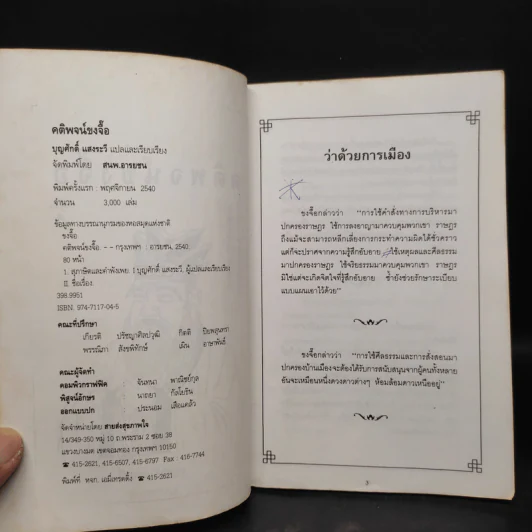 คติพจน์ขงจื๊อ
บุญศักดิ์ แสงระวี แปลและเรียบเรียง
จัดพิมพ์โดย สนพ.อารยชน
พิมพ์ครั้งแรก พฤศจิกายน 2540
จำนวน 3,000 เล่ม
ข้อมูลทางบรรณานุกรมของหอสมุดแห่งชาติ
ขงจื๊อ
คติพจน์ขงจื๊อ. -- กรุงเทพฯ : อารยชน, 2540.
80 หน้า
1. สุภาษิตและคำพังเพย. I.บุญศักดิ์ แสงระวี, ผู้แปลและเรียบเรียง
II. ชื่อเรื่อง.
398.9951
ISBN. 974-7117-04-5
คณะที่ปรึกษา
เกียรติ ปรัชญาศิลปวุฒิ กิตติ ปิยพสุนทรา
พรรณิภา สังขพิทักษ์ เฉิน อาษาพันธ์
คณะผู้จัดทำ
คอมพิวกราฟฟิค จันทนา พาณิชย์กุล
พิสูจน์อักษร นาถยา กัลโยธิน
ออกแบบปก ประนอม เสือแคล้ว
จัดจำหน่ายโดย สายส่งสุขภาพใจ
14/349-350 หมู่ 10 ถ.พระราม 2 ซอย 38
แขวงบางมด เขตจอมทอง กรุงเทพฯ 10150
☎ 415-2621, 415-6507, 415-6797 Fax : 416-7744
พิมพ์ที่ หจก. เอมี่เทรดดิ้ง ☎ 415-2621
ว่าด้วยการเมือง
ขงจื๊อกล่าวว่า “การใช้คำสั่งทางการบริหารมา
ปกครองราษฎร ใช้การลงอาญามาควบคุมพวกเขา ราษฎร
ถึงแม้จะสามารถหลีกเลี่ยงการกระทำความผิดได้ชั่วคราว
แต่ก็จะปราศจากความรู้สึกอับอาย ใช้เหตุผลและศีลธรรม
มาปกครองราษฎร ใช้จริยธรรมมาควบคุมพวกเขา ราษฎร
มิใช่แต่จะเกิดจิตใจที่รู้สึกอับอาย ซ้ำยังช่วยรักษาระเบียบ
แบบแผนเอาไว้ด้วย”
ขงจื๊อกล่าวว่า “การใช้ศีลธรรมและการสั่งสอนมา
ปกครองบ้านเมืองจะต้องได้รับการสนับสนุนจากผู้คนทั้งหลาย
อันจะเหมือนหนึ่งดวงดาวต่างๆ ห้อมล้อมดาวเหนืออยู่”